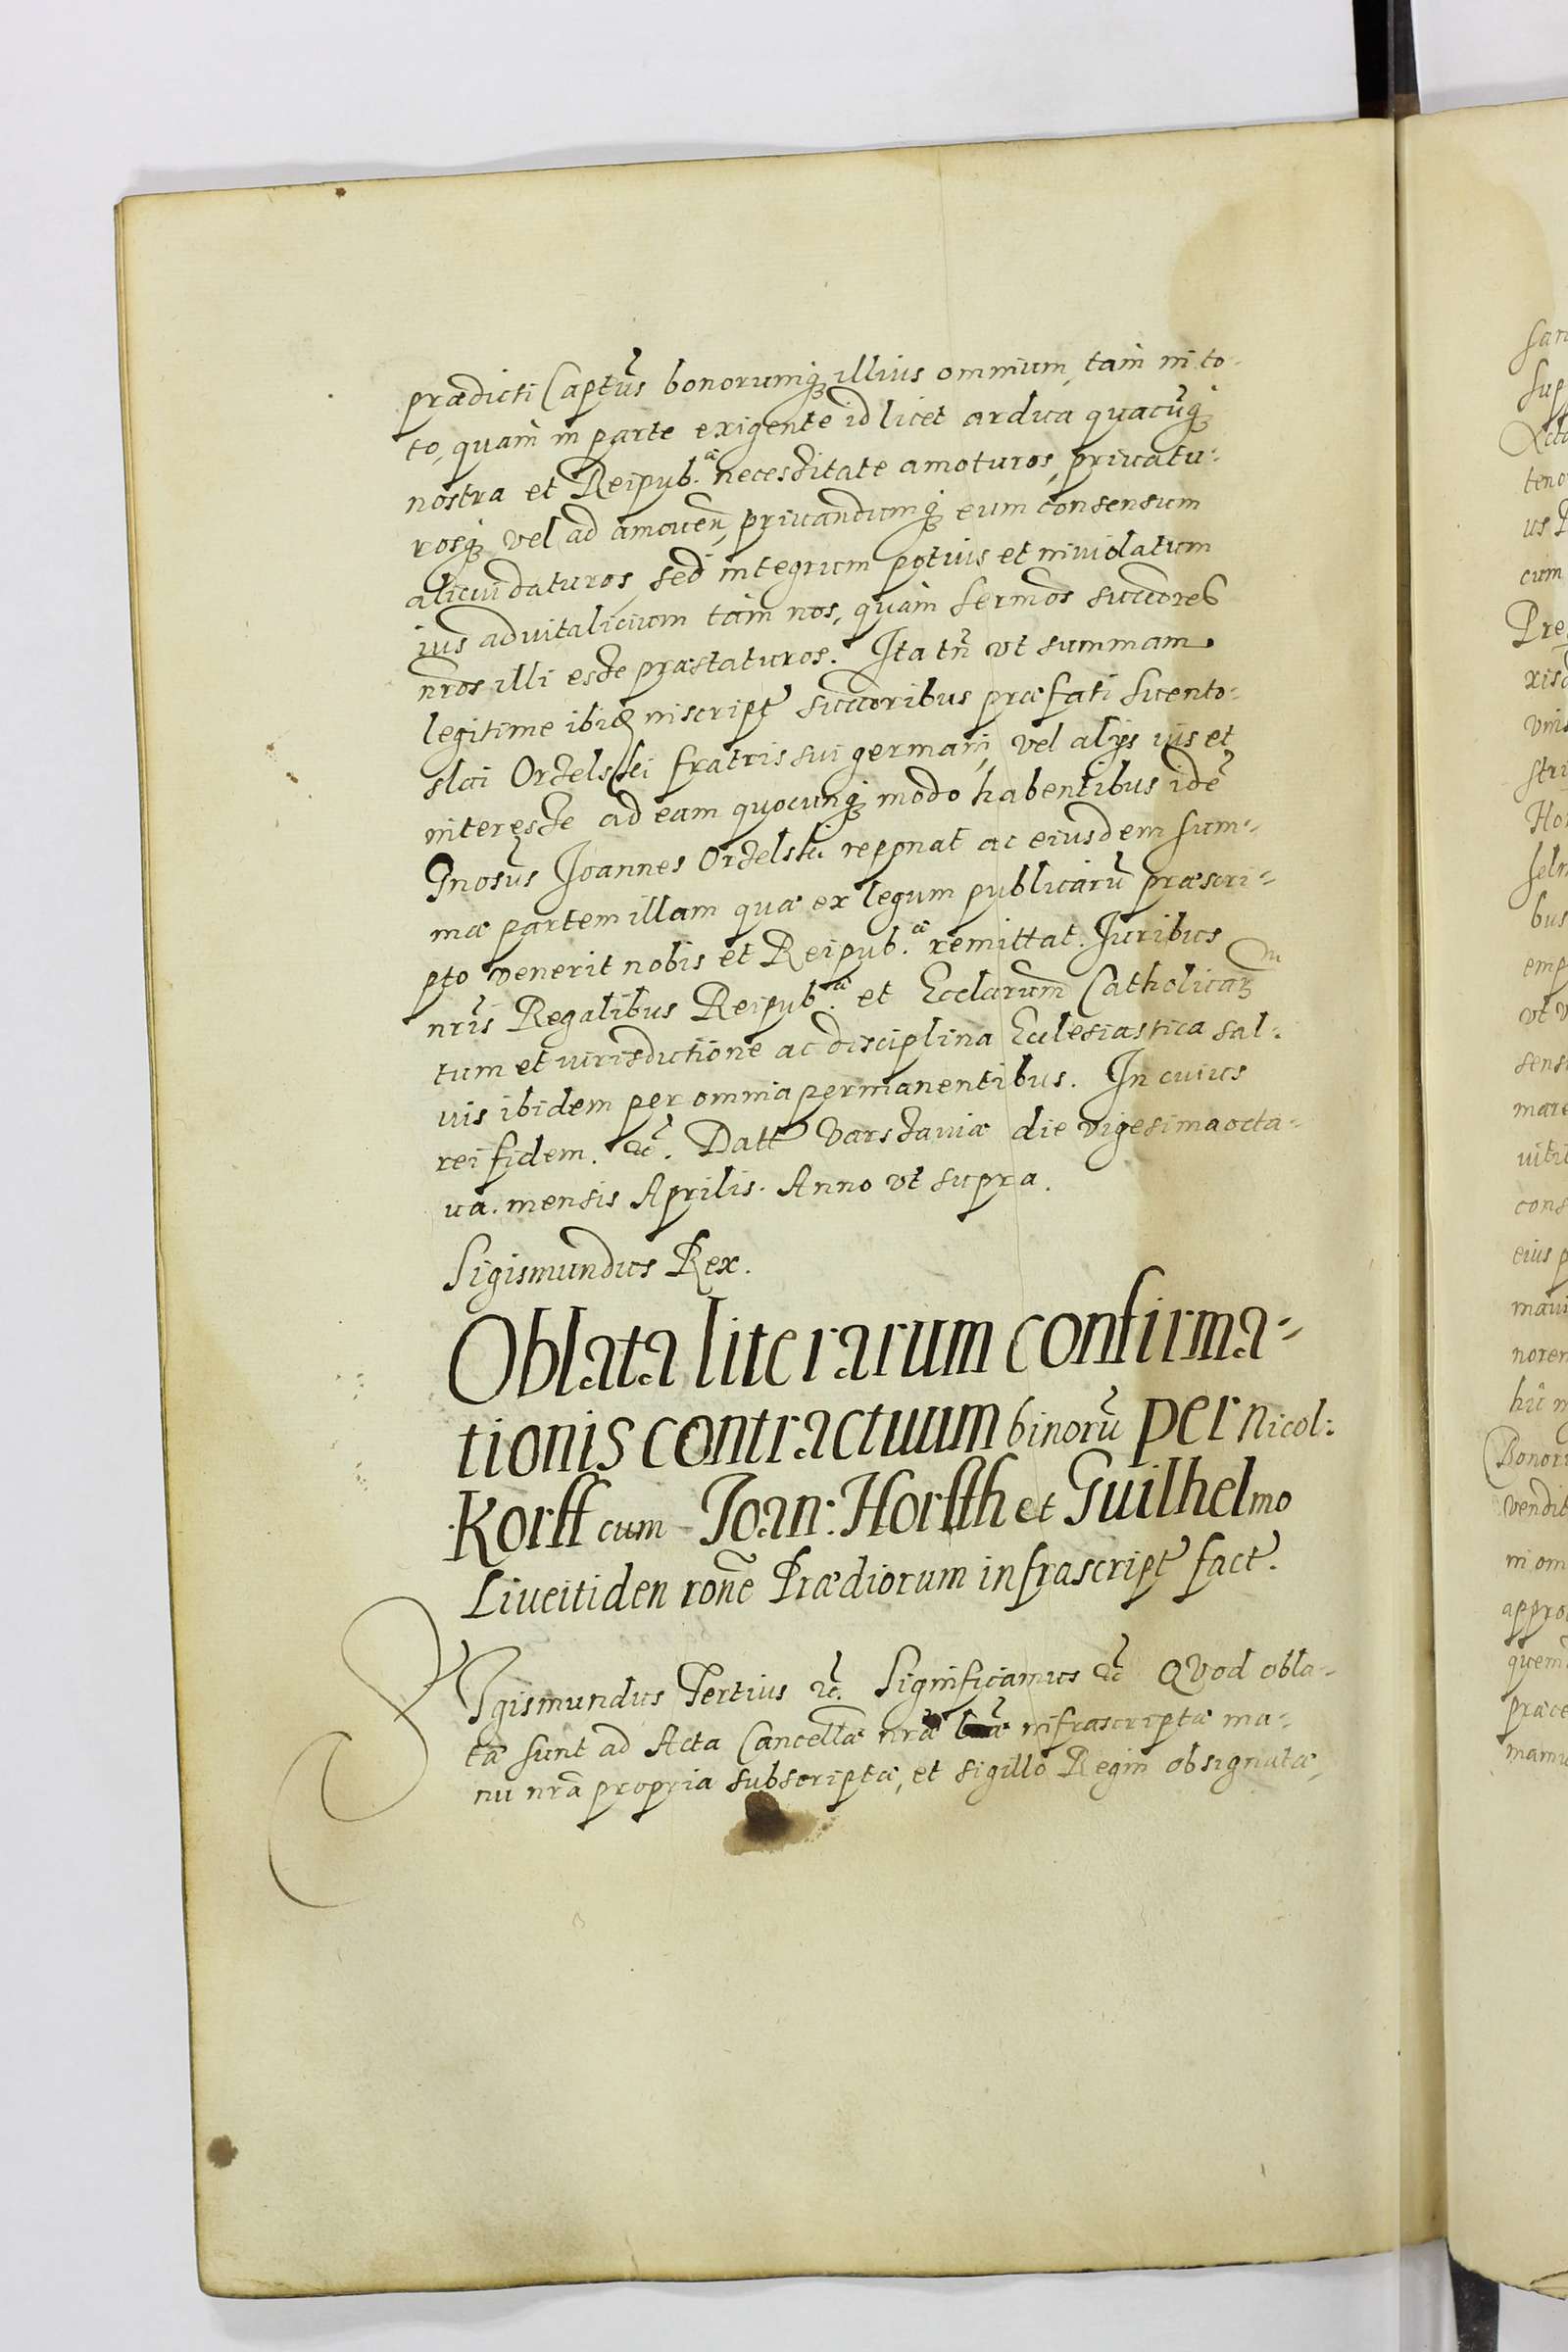 prædicti Captũs bonorumq illius omnium, tam in to-
to, quam in parte exigente id licet ardua quacũq
nostra et Reipub.æ necessitate amoturos, privatu-
rosq vel ad amoven, privandumq eum consensum
alicui daturos, sed integrum potius et inviolatum
ius advitalicium tam nos, quam Sermos succores
nros illi esse præstaturos. Ita tñ vt summam
legitime ibiđ inscript succoribus præfati
Ordelski fratris sui germani, vel alijs ius et
interesse ad eam quocunq modo habentibus idẽ
Gnosus Joannes Ordelski repnat ac eiusdem sum-
mæ partem illam quæ ex legum publicarũ præscri-
pto venerit nobis et Reipub.æ remittat. Juribus
nris Regalibus Reipub.æ et Ecclarum Catholicarum
tum et iurisdictione ac disciplina Ecclesiastica sal-
vis ibidem per omnia permanentibus. In cuius
rei fidem. &c. Datt Varsaviæ die vigesima octa-
va. mensis Aprilis. Anno vt supra.
Sigismundus Rex.
Oblata literarum confirma-
tionis contractuum binorũ per Nicol:
Korff cum Joan: Horssth et Guilhelmo
Liveitiden rone Prædiorum infrascript fact.
Sigismundus Tertius &c. Significamus &c Quod obla-
tæ sunt ad Acta Cancellæ nræ infrascriptæ ma-
nu nra propria subscriptæ, et sigillo Regni obsignatæ,